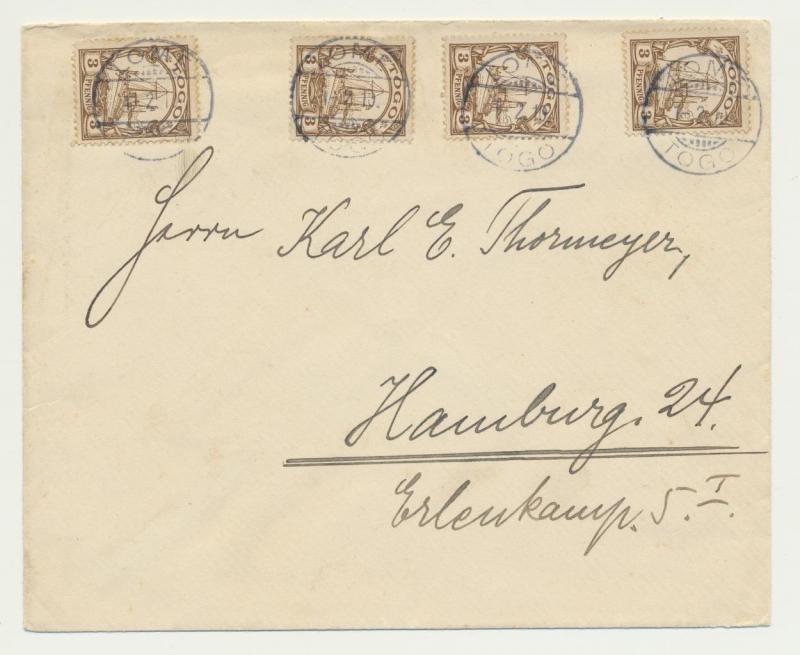 TOGO 3 PFENNIG 3
TOGO 3 PFENNIG 3
TOGO 3 PFENNIG 3
TOGO 3 PFENNIG 3
LOME
LOME
TOGO
TOGO
Herrn Karl E. Thormeyer,
Hamburg. 24.
Erlenkamp. 5. I.